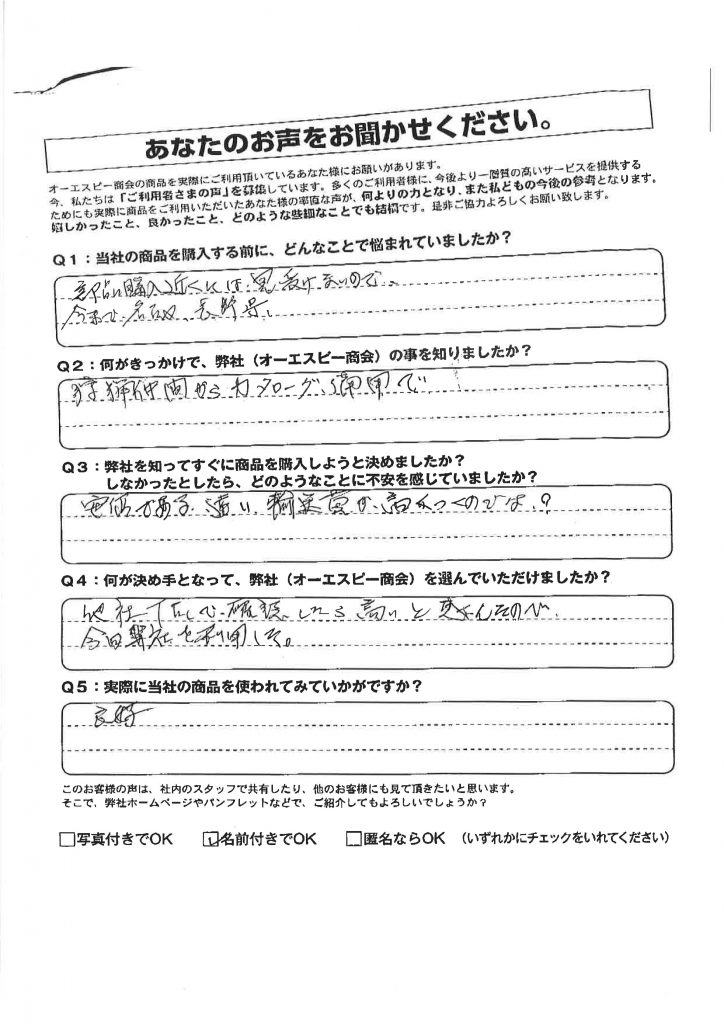 あなたのお声をお聞かせください。
オーエスピー商会の商品を実際にご利用頂いているあなた様にお願いがあります。
今、私たちは「ご利用者さまの声」を募集しています。多くのご利用者様に、今後より一層質の高いサービスを提供する
ためにも実際に商品をご利用いただいたあなた様の率直な声が、何よりの力となり、また私どもの今後の参考となります。
嬉しかったこと、良かったこと、どのような些細なことでも結構です。是非ご協力よろしくお願い致します。
Q1:当社の商品を購入する前に、どんなことで悩まれていましたか?
部品購入近くには見受けないので、
今まで 名古 長野県、
Q2:何がきっかけで、弊社(オーエスピー商会)の事を知りましたか?
狩猟仲間からカタローグ、で
Q3:弊社を知ってすぐに商品を購入しようと決めましたか?
しなかったとしたら、どのようなことに不安を感じていましたか?
電話である 遠い、輸送費が高くつくのでは?
Q4:何が決め手となって、弊社(オーエスピー商会)を選んでいただけましたか?
他社 で 確認したら高いと なので
今回弊社を利用した。
Q5:実際に当社の商品を使われてみていかがですか?
良好
このお客様の声は、社内のスタッフで共有したり、他のお客様にも見て頂きたいと思います。
そこで、弊社ホームページやパンフレットなどで、ご紹介してもよろしいでしょうか?
□写真付きでOK ☑名前付きでOK □匿名ならOK (いずれかにチェックをいれてください)